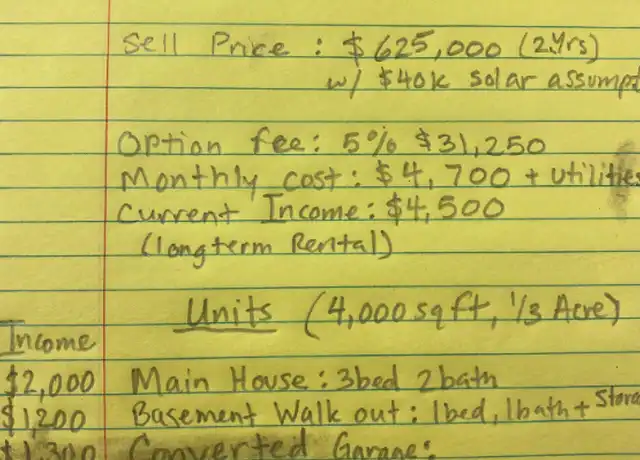 Sell Price : $625,000 (2yrs)
w/ $40K solar assumpt
Option fee: 5% $31,250
Monthly cost: $4,700 + utilities
Current Income: $4,500
(long term Rental)
Units (4,000 sqft, 1/3 Acre)
Income
$2,000 Main House: 3bed 2bath
$1,200 Basement Walk out: 1bed, 1bath + Stora
$1,300 Converted Garage: